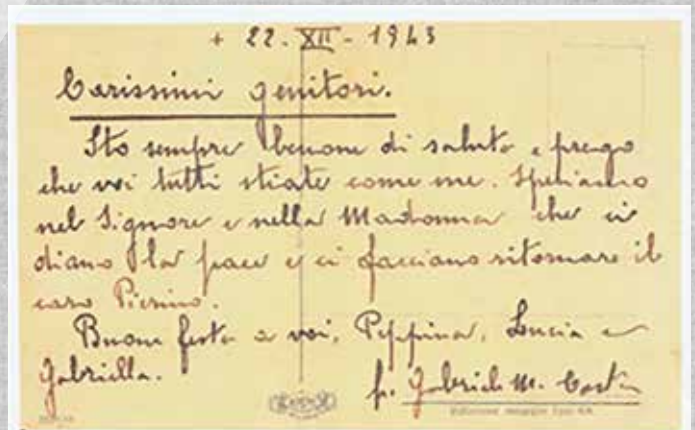 + 22 - XII - 1943
Carissimi genitori.
Sto sempre benone di salute e prego
che voi tutti stiate come me. Speriamo
nel Signore e nella Madonna che ci
diano la pace e ci facciano ritornare il
caro Pierino.
Buone feste a voi, Peppina, Lucia e
Gabriella.
fr. Gabriele M.